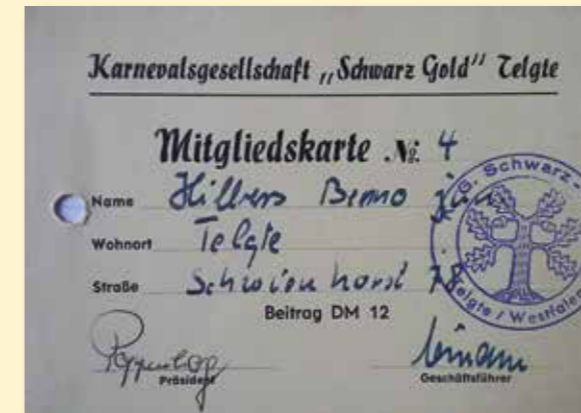 Karnevalsgesellschaft „Schwarz Gold" Telgte
Mitgliedskarte № 4
Name Hilbers Benno jun
Wohnort Telgte
Straße 78
Beitrag DM 12
Präsident Geschäftsführer
G. Schwarz-
Telgte / Westfalen